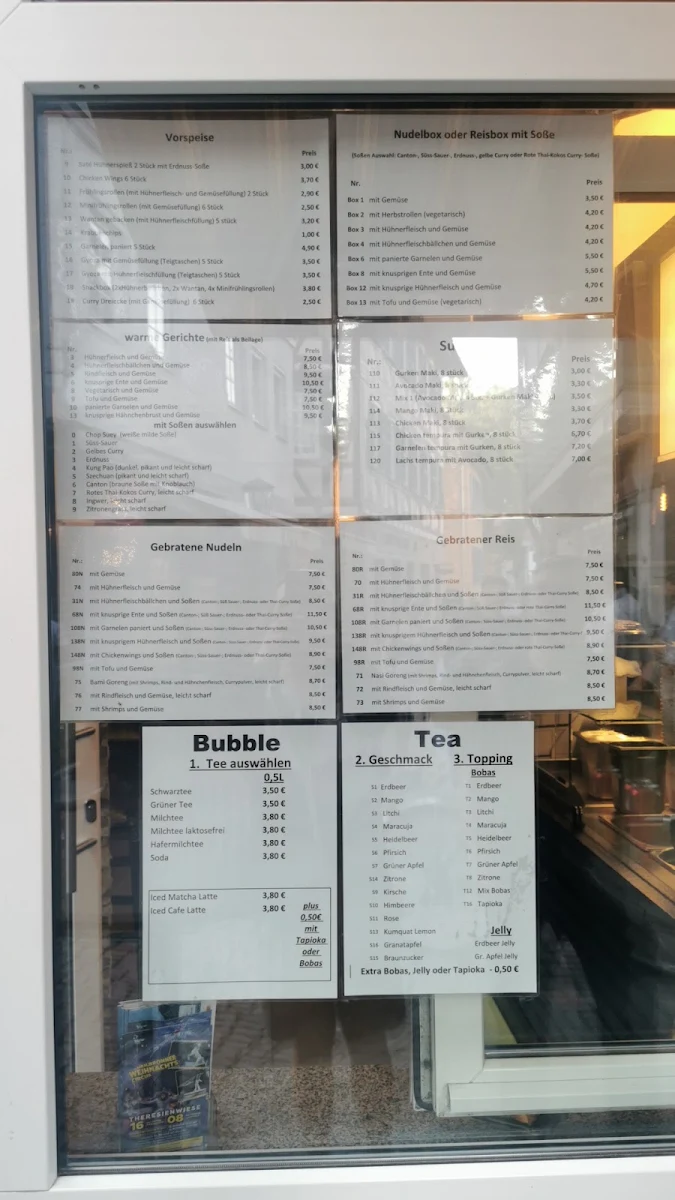 Vorspeise
Preis
9 Saté Hühnerspieß 2 Stück mit Erdnuss-Soße 3,00 €
10 Chicken Wings 6 Stück 3,70 €
11 Frühlingsrollen (mit Hühnerfleisch- und Gemüsefüllung) 2 Stück 2,90 €
12 Minifrühlingsrollen (mit Gemüsefüllung) 6 Stück 2,50 €
13 Wantan gebacken (mit Hühnerfleischfüllung) 5 stück 3,20 €
14 1,00 €
15 Garnelen paniert 5 Stück 4,90 €
16 Gyoza mit Gemüsefüllung (Teigtaschen) 5 Stück 3,50 €
17 Gyoza mit Hühnerfleischfüllung (Teigtaschen) 5 Stück 3,50 €
18 2x Wantan, 4x Minifrühlingsrollen) 3,80 €
19 Curry Dreiecke (mit Gemüsefüllung) 5 Stück 2,50 €
Nudelbox oder Reisbox mit Soße
(Soßen Auswahl: Canton-, Süss-Sauer-, Erdnuss-, gelbe Curry oder Rote Thai-Kokos Curry- Soße)
Nr. Preis
Box 1 mit Gemüse 3,50 €
Box 2 mit Herbstrollen (vegetarisch) 4,20 €
Box 3 mit Hühnerfleisch und Gemüse 4,20 €
Box 4 mit Hühnerfleischbällchen und Gemüse 4,20 €
Box 6 mit panierte Garnelen und Gemüse 5,50 €
Box 8 mit knusprigen Ente und Gemüse 5,50 €
Box 12 mit knusprige Hühnerfleisch und Gemüse 4,70 €
Box 13 mit Tofu und Gemüse (vegetarisch) 4,20 €
warme Gerichte (mit Reis als Beilage)
Nr. Preis
Hühnerfleisch und Gemüse 7,50 €
Hühnerfleischbällchen und Gemüse 8,50 €
Rindfleisch und Gemüse 9,50 €
knusprige Ente und Gemüse 10,50 €
Vegetarisch und Gemüse 7,50 €
Tofu und Gemüse 7,50 €
10 panierte Garnelen und Gemüse 10,50 €
13 knusprige Hähnchenbrust und Gemüse 9,50 €
mit Soßen auswählen
Chop Suey (weiße milde Soße)
1 Süss-Sauer
2 Gelbes Curry
3 Erdnuss
4 Kung Pao (dunkel, pikant und leicht scharf)
5 Szechuan (pikant und leicht scharf)
6 Canton (braune Soße mit Knoblauch)
7 Rotes Thai-Kokos Curry, leicht scharf
8 Ingwer, leicht scharf
9 Zitronengras, leicht scharf
Su
Nr.: Preis
110 Gurken Maki, 8 stück 3,00 €
111 Avocado Maki, 8 stück 3,30 €
112 Mix 1 Gurken Maki 3,50 €
114 Mango Maki, 8 stück 3,30 €
115 Chicken Maki, 8 stück 3,70 €
Chicken tempura mit Gurken, 8 stück 6,70 €
117 Garnelen tempura mit Gurken, 8 stück 7,20 €
120 Lachs tempura mit Avocado, 8 stück 7,00 €
Gebratene Nudeln
Nr.: Preis
80N mit Gemüse 7,50 €
74 mit Hühnerfleisch und Gemüse 7,50 €
31N mit Hühnerfleischbällchen und Soßen (Canton-, Süß-Sauer-, Erdnuss- oder Thai-Curry Soße) 8,50 €
68N mit knusprige Ente und Soßen (Canton-, Süß-Sauer-, Erdnuss- oder Thai-Curry Soße) 11,50 €
108N mit Garnelen paniert und Soßen (Canton-, Süss-Sauer-, Erdnuss- oder Thai-Curry-Soße) 10,50 €
138N mit knusprigem Hühnerfleisch und Soßen (Canton-, Süss-Sauer-, Erdnuss- oder Thai-Curry-Soße) 9,50 €
148N mit Chickenwings und Soßen (Canton-, Süss-Sauer-, Erdnuss- oder Thai-Curry-Soße) 8,90 €
98N mit Tofu und Gemüse 7,50 €
75 Bami Goreng (mit Shrimps, Rind- und Hähnchenfleisch, Currypulver, leicht scharf) 8,70 €
76 mit Rindfleisch und Gemüse, leicht scharf 8,50 €
77 mit Shrimps und Gemüse 8,50 €
Gebratener Reis
Nr.: Preis
80R mit Gemüse 7,50 €
70 mit Hühnerfleisch und Gemüse 7,50 €
31R mit Hühnerfleischbällchen und Soßen (Canton-, Süß-Sauer-, Erdnuss- oder Thai-Curry Soße) 8,50 €
68R mit knusprige Ente und Soßen (Canton-, Süß-Sauer-, Erdnuss- oder Thai-Curry Soße) 11,50 €
108R mit Garnelen paniert und Soßen (Canton-, Süss-Sauer-, Erdnuss- oder Thai-Curry-Soße) 10,50 €
138R mit knusprigem Hühnerfleisch und Soßen (Canton-, Süss-Sauer-, Erdnuss- oder Thai-Curry 9,50 €
148R mit Chickenwings und Soßen (Canton-, Süss-Sauer-, Erdnuss- oder Thai-Curry-Soße) 8,90 €
98R mit Tofu und Gemüse 7,50 €
71 Nasi Goreng (mit Shrimps, Rind- und Hähnchenfleisch, Currypulver, leicht scharf) 8,70 €
72 mit Rindfleisch und Gemüse, leicht scharf 8,50 €
73 mit Shrimps und Gemüse 8,50 €
Bubble
1. Tee auswählen
0,5L
Schwarztee 3,50 €
Grüner Tee 3,50 €
Milchtee 3,80 €
Milchtee laktosefrei 3,80 €
Hafermilchtee 3,80 €
Soda 3,80 €
Iced Matcha Latte 3,80 €
Iced Cafe Latte 3,80 €
plus
0,50€
mit
Tapioka
oder
Bobas
Tea
2. Geschmack 3. Topping
Bobas
S1 Erdbeer T1 Erdbeer
S2 Mango T2 Mango
S3 Litchi T3 Litchi
S4 Maracuja T4 Maracuja
S5 Heidelbeer T5 Heidelbeer
S6 Pfirsich T6 Pfirsich
S7 Grüner Apfel T7 Grüner Apfel
S14 Zitrone T8 Zitrone
S9 Kirsche T12 Mix Bobas
S10 Himbeere T16 Tapioka
S11 Rose
S13 Kumquat Lemon Jelly
S16 Granatapfel Erdbeer Jelly
S15 Braunzucker Gr. Apfel Jelly
Extra Bobas, Jelly oder Tapioka - 0,50 €
WEIHNACHTS
THERESIENWIESE
16 08